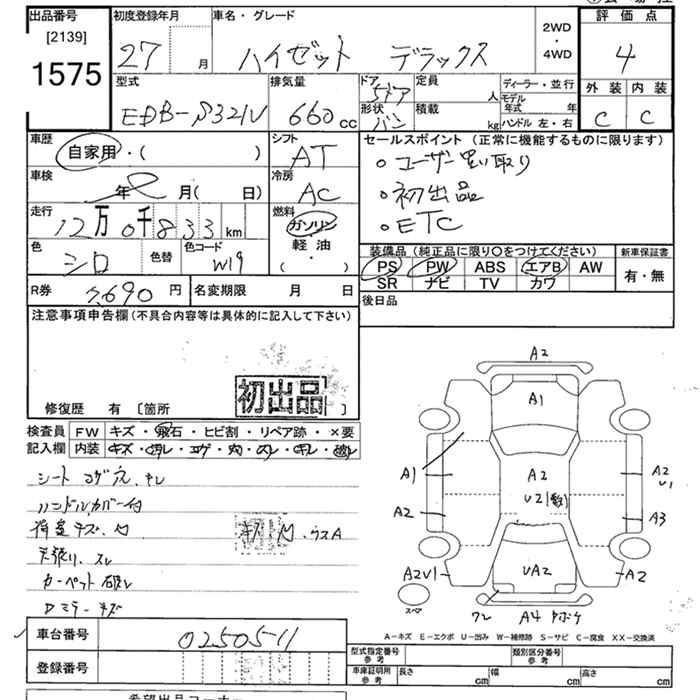 出品番号
[2139]
1575
初度登録年月
27 月
車名・グレード
ハイゼット デラックス
2WD
・
4WD
評価点
4
外装 内装
C C
型式
EBD-S321V
排気量
660 CC
ドア
5ドア
形状
バン
定員
人
積載
kg
ディーラー・並行
モデル
年式 年
ハンドル 左・右
車歴
自家用・( )
シフト
AT
セールスポイント (正常に機能するものに限ります)
・ユーザー買い取り
・初出品
・ETC
車検
年 月( 日)
冷房
AC
走行
12万0千833km
燃料
ガソリン
軽油
( ・ )
色
シロ
色替
色コード
W19
装備品 (純正品に限り○をつけてください)
PS PW ABS エアB AW
SR ナビ TV カワ
新車保証書
有・無
R券
7,690 円
名変期限 月 日
後日品
注意事項申告欄(不具合内容等は具体的に記入して下さい)
初出品
修復歴 有 [箇所 ]
検査員
記入欄
FW キズ・飛石・ヒビ割・リペア跡・×要
内装 キズ・汚レ・コゲ・穴・スレ・キレ・破レ
シート コゲ穴、キレ
ハンドルカバー付
荷室キズ、凹
キズ・凹・ウスA
天張り、スレ
カーペット破レ
Dミラーキズ
A2
A1
A1
A2
U2(数)
A2
U1
A2
A3
A2U1
UA2
A2
スペア
ワレ A4
A-キズ E-エクボ U-凹み W-補修跡 S-サビ C-腐食 XX-交換済
車台番号
0250511
登録番号
型式指定番号
参考
類別区分番号
参考
車庫証明用
参考
長さ cm 幅 cm 高さ cm
希望出品コーナー